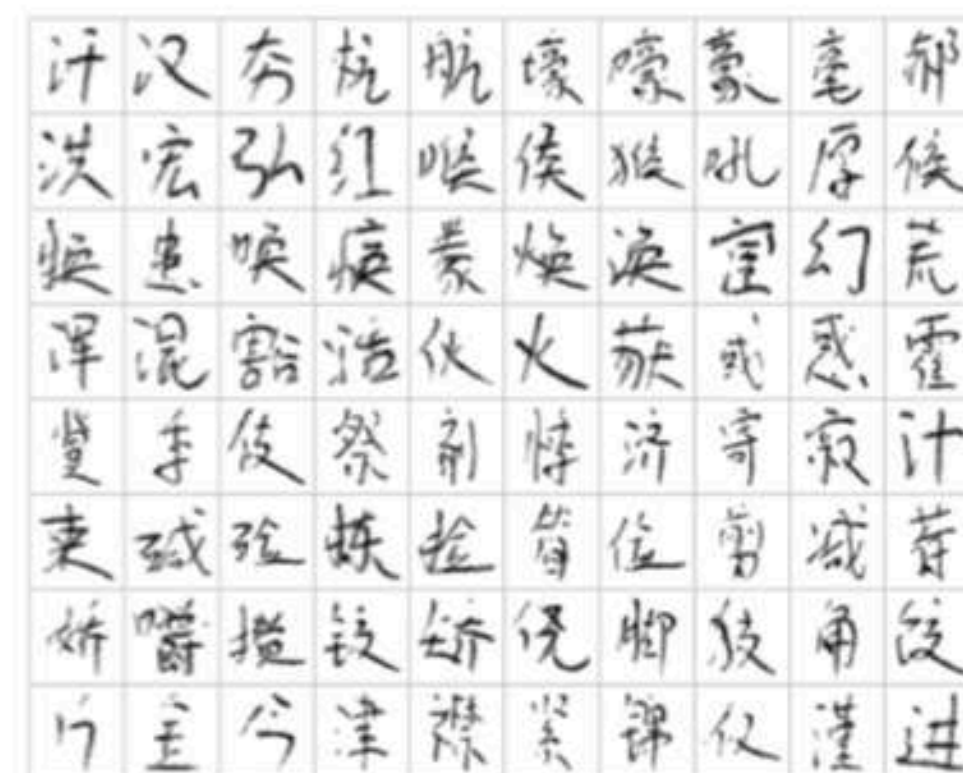 汗汉夯杭航壕嚎豪毫郝
洪宏弘红喉侯猴吼厚候
换患唤痪豢焕涣宦幻荒
浑混豁活伙火获或惑霍
冀季伎祭剂悸济寄寂计
柬碱硷拣捡简俭剪减荐
娇嚼搅铰矫侥脚狡角饺
斤金今津襟紧锦仅谨进